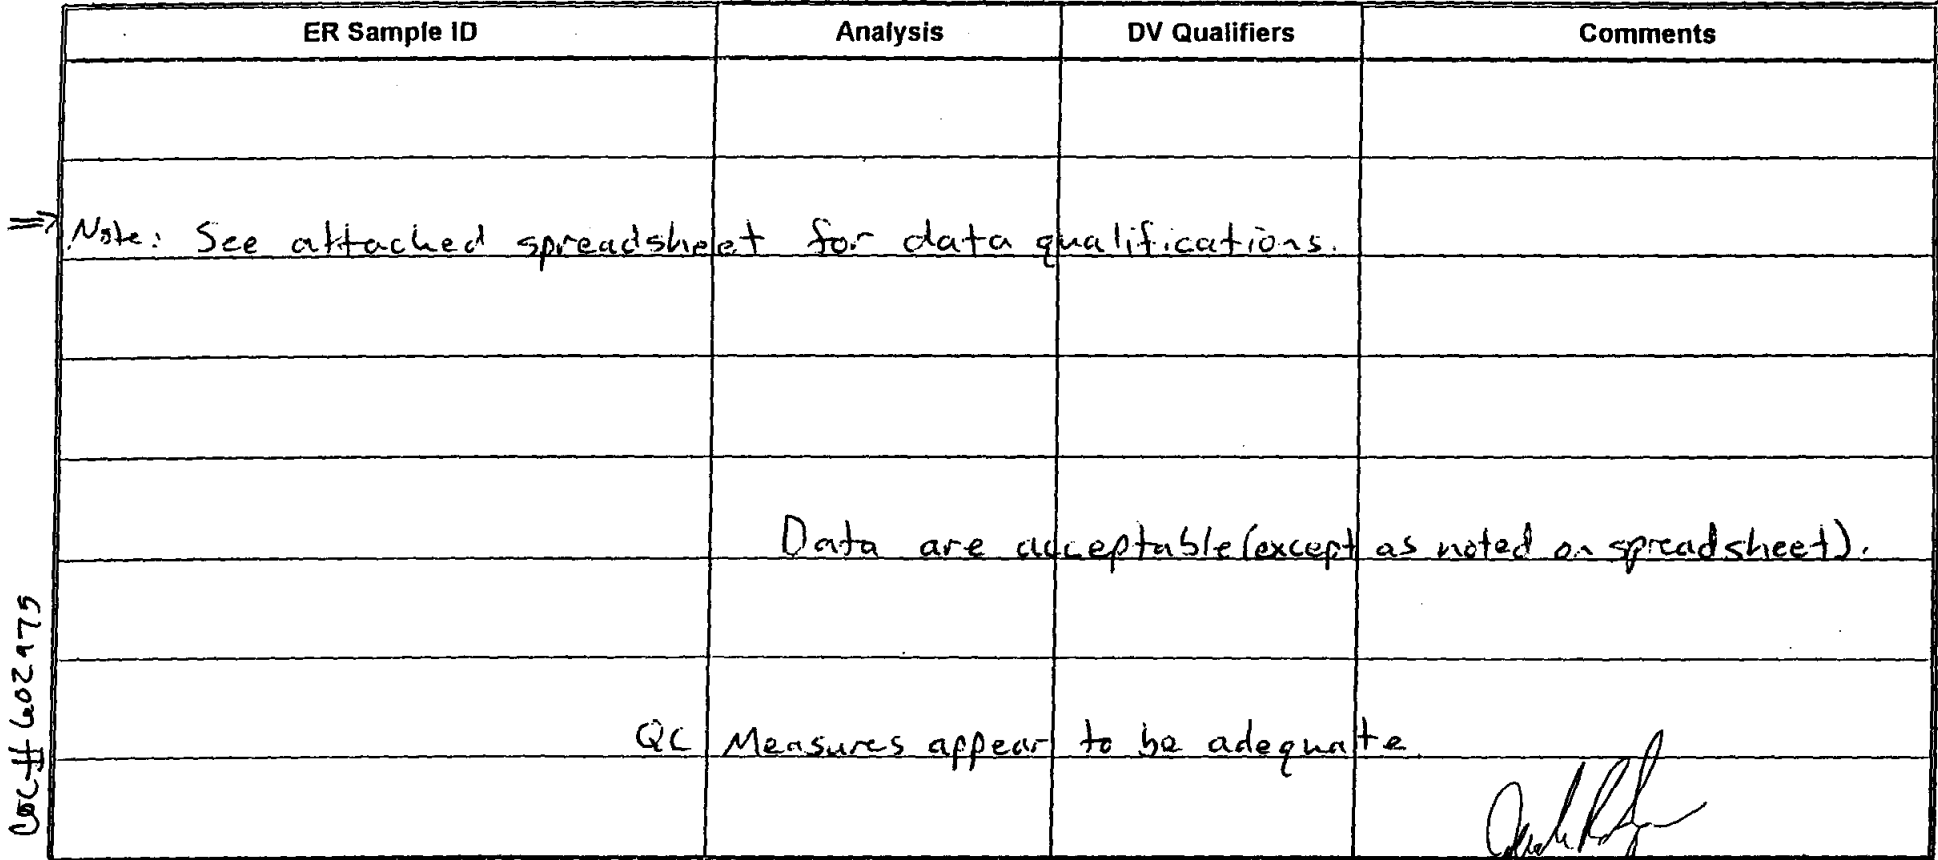 ER Sample ID Analysis DV Qualifiers Comments
⇒ Note: See attached spreadsheet for data qualifications.
Data are acceptable (except as noted on spreadsheet).
QC Measures appear to be adequate.
COC# 602975